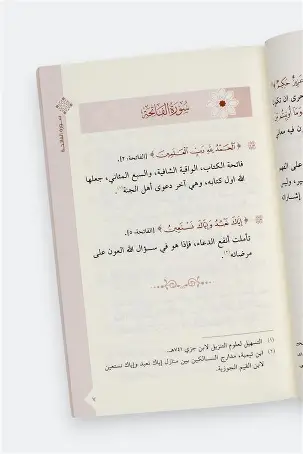 سُورَةُ الفَاتِحَةِ
﴿ الْحَمْدُ لِلَّهِ رَبِّ الْعَالَمِينَ ﴾ (الفاتحة: ٢).
فاتحة الكتاب، الواقية الشافية، والسبع المثاني، جعلها
الله اول كتابه، وهي آخر دعوى أهل الجنة(١).
﴿ إِيَّاكَ نَعْبُدُ وَإِيَّاكَ نَسْتَعِينُ ﴾ (الفاتحة: ٥).
تأملت أنفع الدعاء، فإذا هو في سؤال الله العون على
مرضاته(٢).
(١) التسهيل لعلوم التنزيل لابن جزي ٧٤١هـ.
(٢) ابن تيمية، مدارج السالكين بين منازل إياك نعبد وإياك نستعين
لابن القيم الجوزية.
٧
سورة الفاتحة